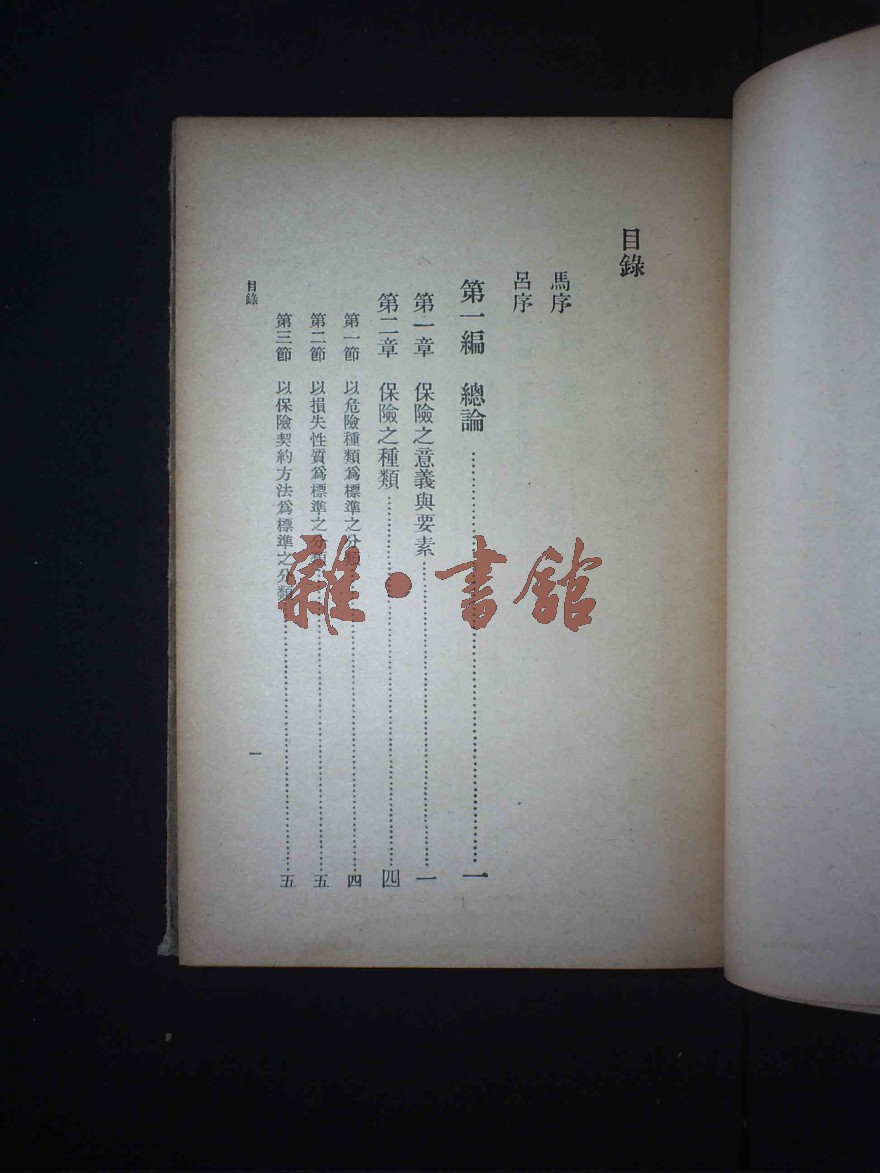 目錄
馬序
呂序
第一編　總論……一
第一章　保險之意義與要素……一
第二章　保險之種類……四
第一節　以危險種類爲標準之分類……四
第二節　以損失性質爲標準之分類……五
第三節　以保險契約方法爲標準之分類……五
目錄
一
雜·書館